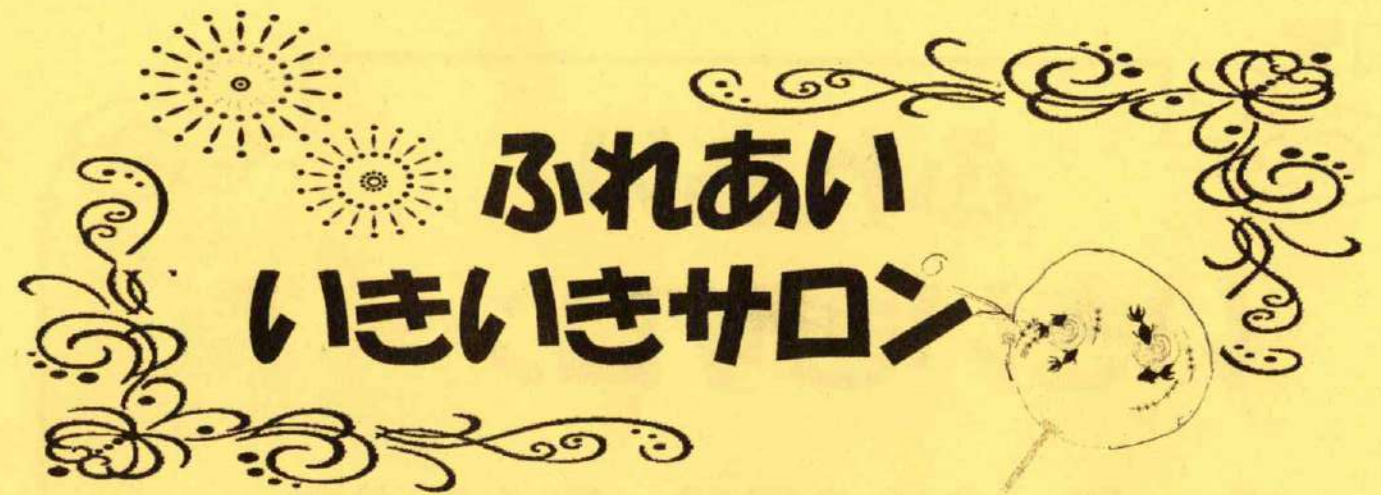 ふれあい
いきいきサロン